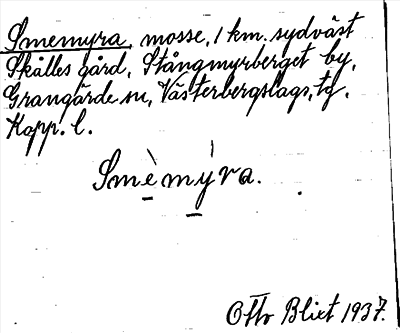 Smemyra, mosse, 1 km. sydväst
Skålles gård, Stångmyrberget by,
Grangärde sn, Västerbergslags, tg.
Kopp. l.
Smèmýra.
Otto Blixt 1937.